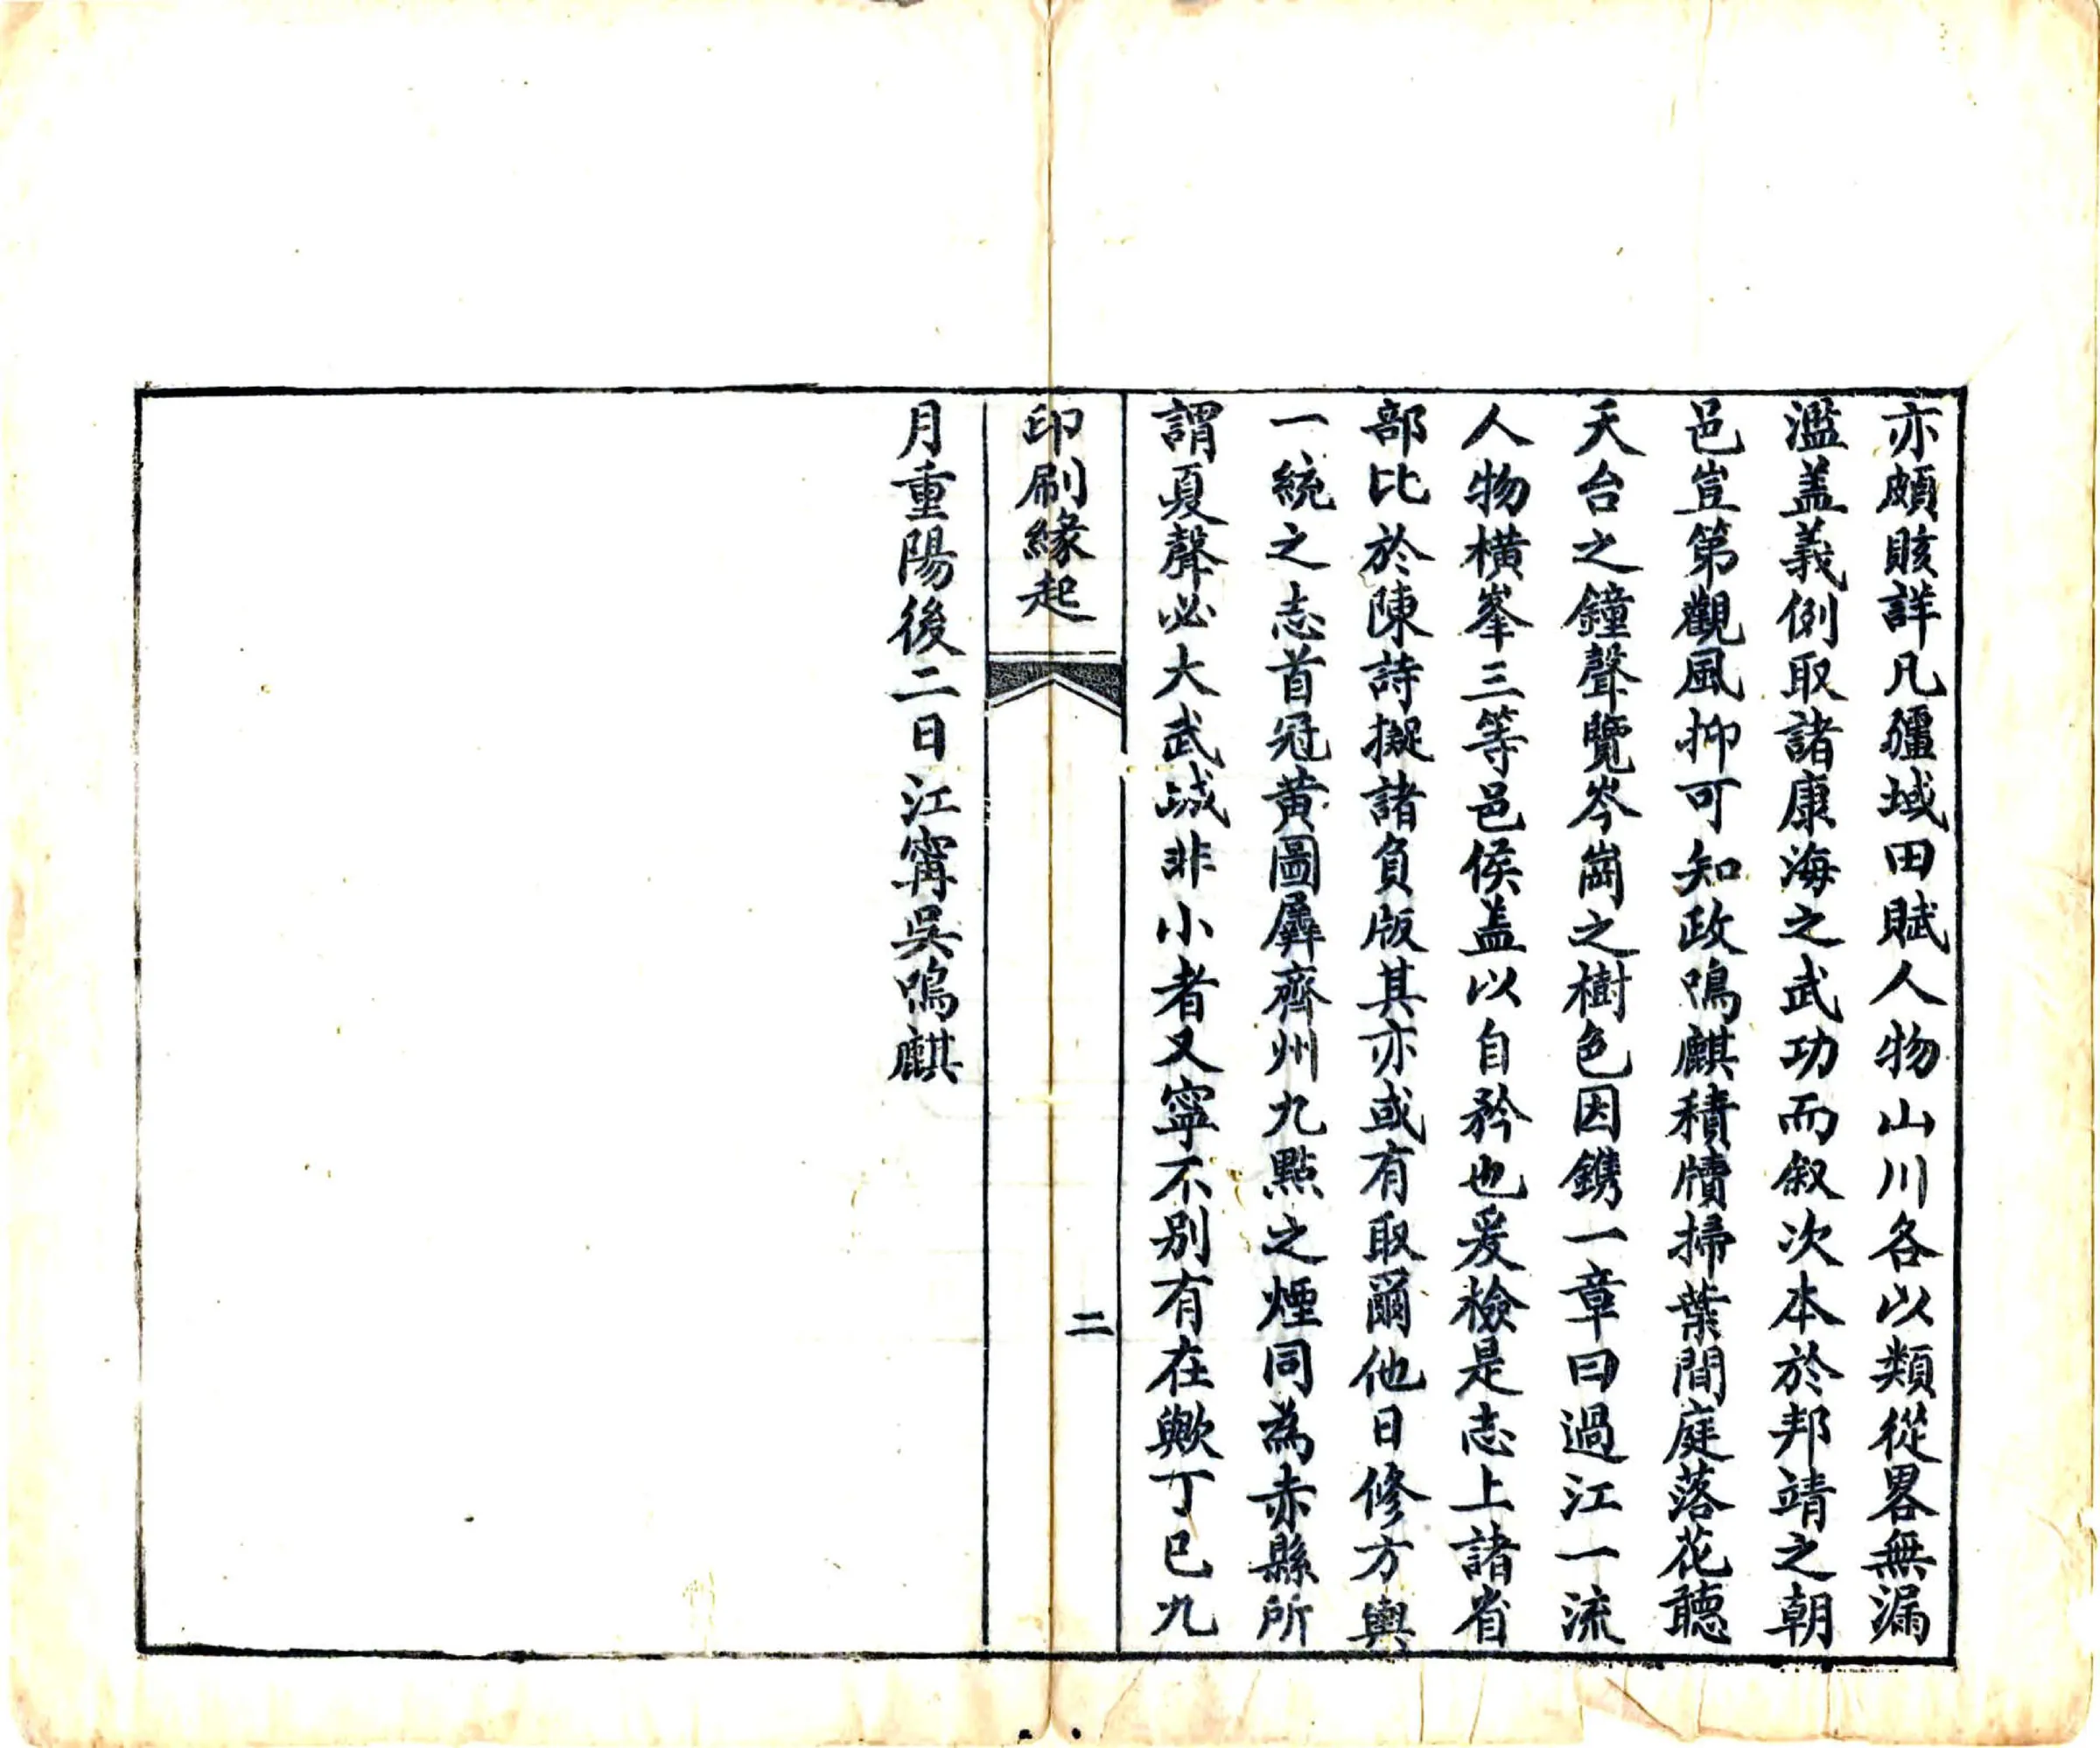 亦頗賅詳凡疆域田賦人物山川各以類從畧無漏
濫盖義例取諸康海之武功而叙次本於邦靖之朝
邑豈第觀風抑可知政鳴麒積牘掃葉閒庭落花聽
天台之鐘聲覽岑崗之樹色因鐫一章曰過江一流
人物橫峯三等邑侯盖以自矜也爰檢是志上諸省
部比於陳詩擬諸負版其亦或有取爾他日修方輿
一統之志首冠黄圖羼齊州九點之煙同為赤縣所
謂夏聲必大武城非小者又寧不別有在歟丁巳九
印刷緣起
二
月重陽後二日江甯吳鳴麒